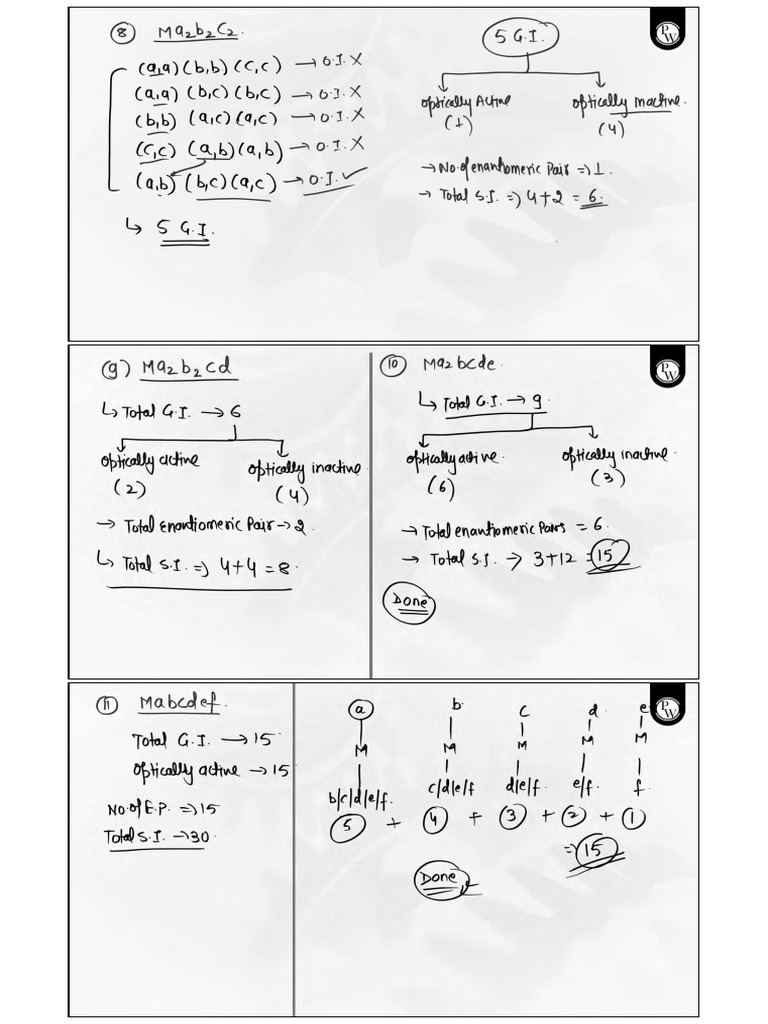 ⑧ Ma2b2C2.
PW
(a,a)(b,b)(c,c) → O.I. X
(a,a)(b,c)(b,c) → O.I. X
(b,b) (a,c)(a,c) → O.I. X
(c,c) (a,b)(a,b) → O.I. X
(a,b) (b,c)(a,c) → O.I. ✓
↳ 5 G.I.
5 G.I.
optically Active
(1)
optically inactive.
(4)
→ No. of enantiomeric Pair ⇒ 1.
→ Total S.I. ⇒ 4+2 = 6.
9) Ma2b2cd
↳ Total G.I. → 6
optically active
(2)
optically inactive.
(4)
→ Total Enantiomeric Pair → 2.
↳ Total S.I. ⇒ 4+4 = 8.
⑩ Ma2bcde.
PW
↳ Total G.I. → 9.
optically active.
(6)
optically inactive.
(3)
→ Total enantiomeric Pairs = 6.
→ Total S.I. → 3+12 = 15
Done
⑪ Mabcdef.
Total G.I. → 15
optically active → 15
No. of E.P. ⇒ 15
Total S.I. → 30.
PW
a b c d e
M M M M M
b/c/d/e/f. c/d/e/f d/e/f. e/f. f.
5 + 4 + 3 + 2 + 1
⇒ 15
Done